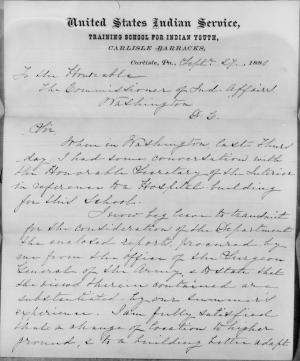 United States Indian Service,
TRAINING SCHOOL FOR INDIAN YOUTH,
CARLISLE BARRACKS,
Carlisle, Pa., Sept. 27 188
To the Honorable
The Commissioner of Ind. Affairs
Washington
D. C.
Sir
When in Washington last Thurs
day I had some conversation with
the Honorable Secretary of the Interior
in reference to a Hospital building
for this School.
I now beg leave to transmit
for the consideration of the Department
the enclosed reports, procured by
me from the office of the Surgeon
General of the Army, & to state that
the views therein contained are
substantiated by our summer's
experience. I am fully satisfied
that a change of location to higher
ground, & to a building better adapt